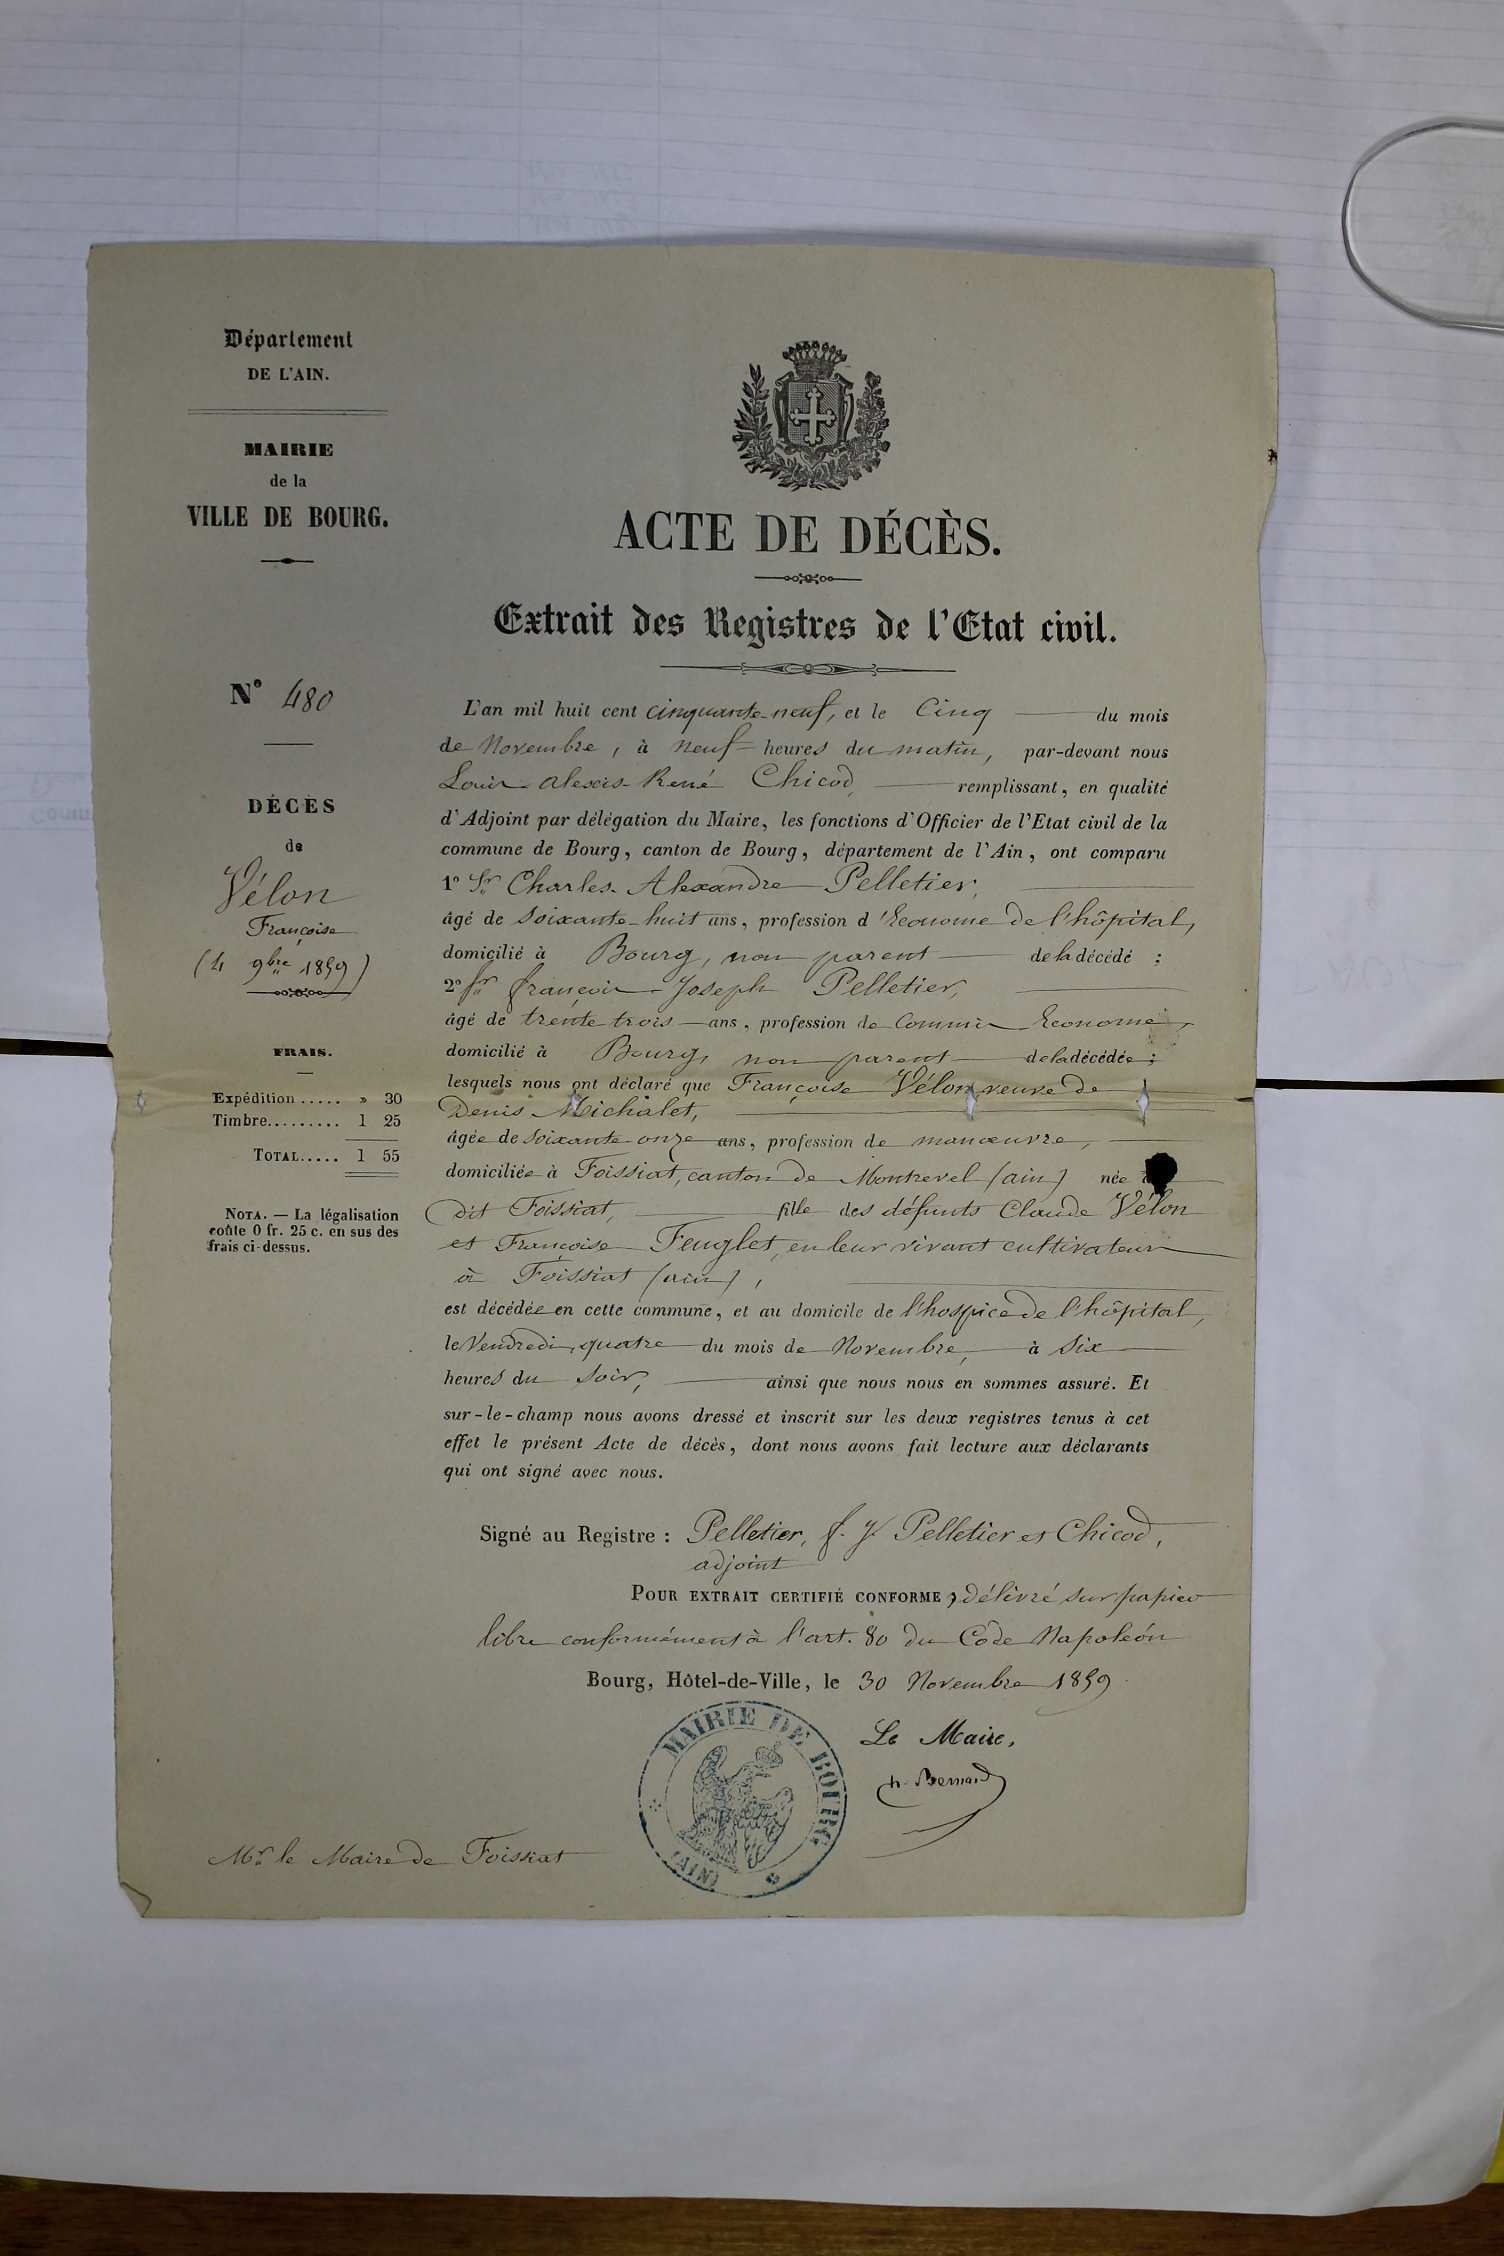 Département
DE L'AIN.
MAIRIE
de la
VILLE DE BOURG.
ACTE DE DÉCÈS.
Extrait des Registres de l'Etat civil.
N° 480
DÉCÈS
de
Vélon
Françoise
(4 9bre 1859)
FRAIS.
Expédition ..... » 30
Timbre......... 1 25
TOTAL..... 1 55
NOTA. — La légalisation
coûte 0 fr. 25 c. en sus des
frais ci-dessus.
L'an mil huit cent cinquante-neuf, et le Cinq du mois
de Novembre, à neuf heures du matin, par-devant nous
Louis-Alexis-René Chicod, remplissant, en qualité
d'Adjoint par délégation du Maire, les fonctions d'Officier de l'Etat civil de la
commune de Bourg, canton de Bourg, département de l'Ain, ont comparu
1° Sr Charles-Alexandre Pelletier,
âgé de soixante-huit ans, profession d'Econome de l'hôpital,
domicilié à Bourg, non parent de la décédé ;
2° Sr françois-Joseph Pelletier,
âgé de trente-trois ans, profession de Commis Econome,
domicilié à Bourg, non parent de la décédée ;
lesquels nous ont déclaré que Françoise Vélon, veuve de
Denis Michalet,
âgée de soixante-onze ans, profession de manœuvre,
domiciliée à Foissiat, canton de Montrevel (ain) née
dit Foissiat, fille des défunts Claude Vélon
et Françoise Feuglet, en leur vivant cultivateurs
à Foissiat (ain),
est décédée en cette commune, et au domicile de l'hospice de l'hôpital,
le Vendredi, quatre du mois de Novembre, à six
heures du soir, ainsi que nous nous en sommes assuré. Et
sur-le-champ nous avons dressé et inscrit sur les deux registres tenus à cet
effet le présent Acte de décès, dont nous avons fait lecture aux déclarants
qui ont signé avec nous.
Signé au Registre : Pelletier, f. J. Pelletier et Chicod,
adjoint
POUR EXTRAIT CERTIFIÉ CONFORME, délivré sur papier
libre conformément à l'art. 80 du Code Napoléon
Bourg, Hôtel-de-Ville, le 30 Novembre 1859.
Le Maire,
h. Bernard
MAIRIE DE BOURG
(AIN)
Mr le Maire de Foissiat